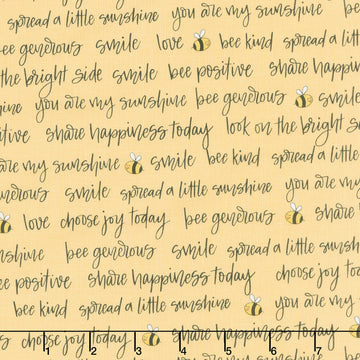 spread a little sunshine you are my sunshine bee
bee generous smile love bee kind spread a little
the bright side smile bee positive share happiness
you are my sunshine bee generous smile
share happiness today look on the bright side
are my sunshine smile bee kind spread a little
generous smile spread a little sunshine you are my
love choose joy today bee generous share
sunshine bee generous smile spread a little sunshine
bee positive share happiness today choose joy to
bee kind spread a little sunshine you are my
choose joy today share happiness today
1 2 3 4 5 6 7